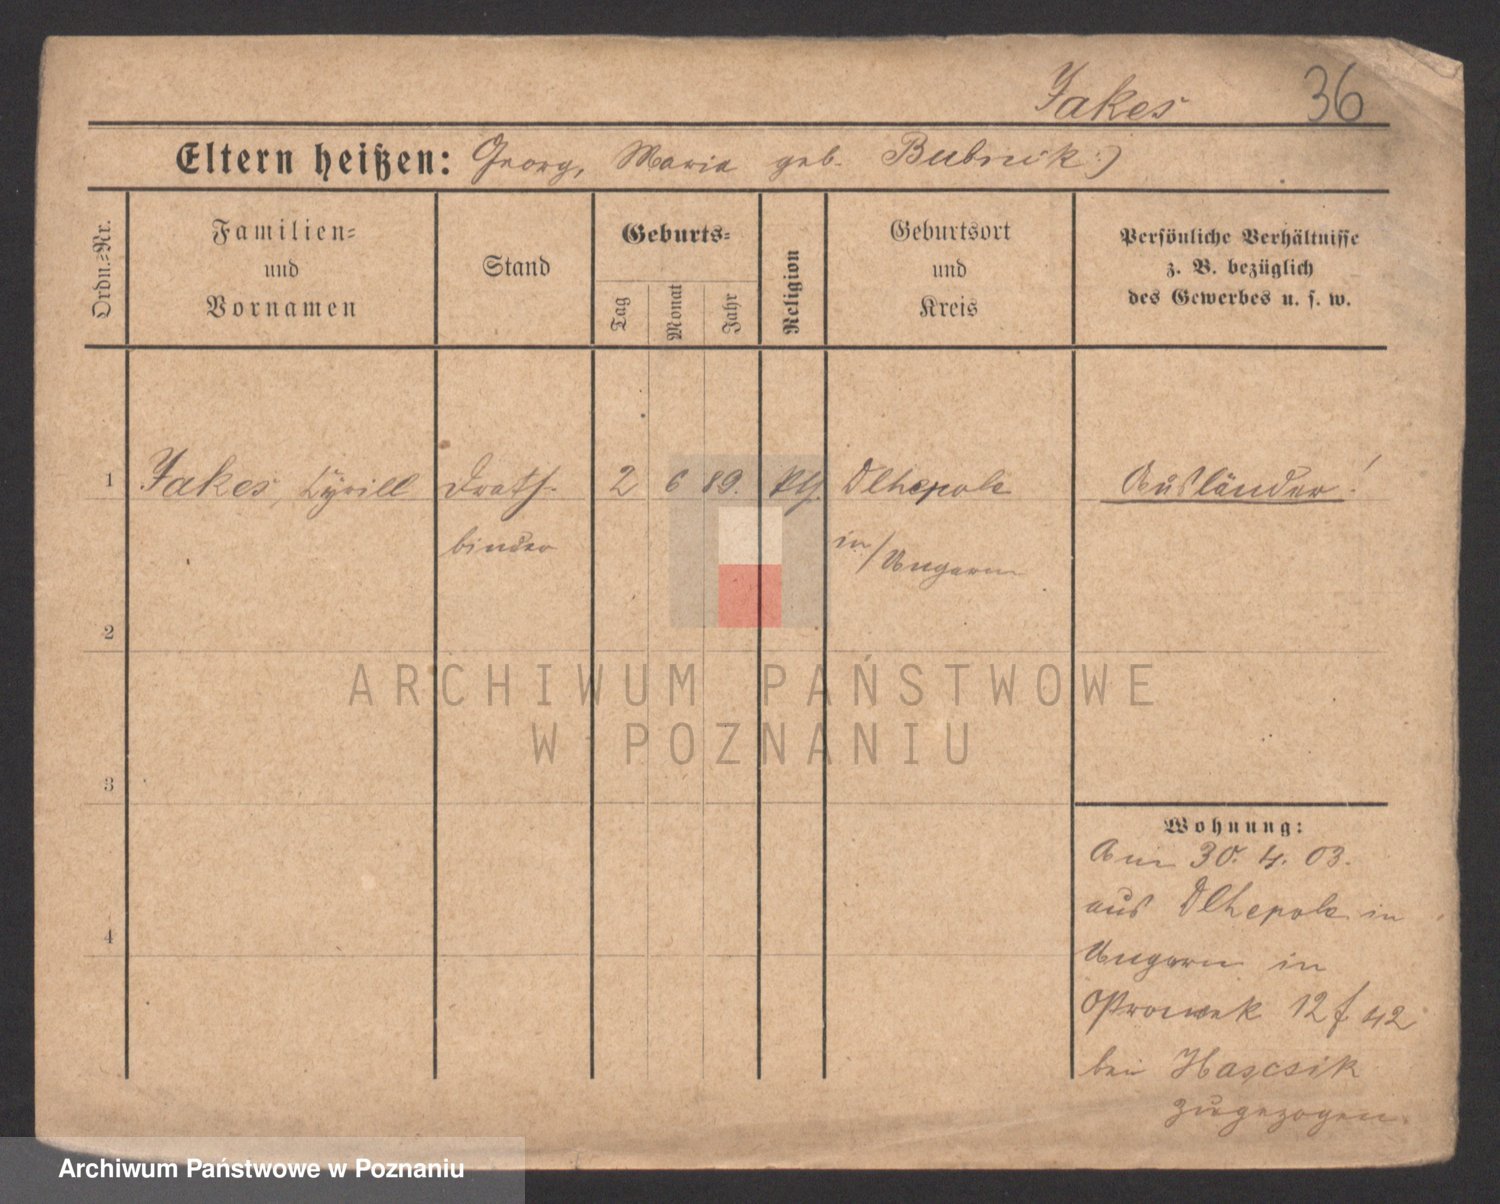 Jakes 36
Eltern heißen: Georg, Maria geb. Bubnik :)
Ordn.=Nr.
Familien=
und
Vornamen
Stand
Geburts=
Tag
Monat
Jahr
Religion
Geburtsort
und
Kreis
Persönliche Verhältnisse
z. B. bezüglich
des Gewerbes u. s. w.
1 Jakes, Cyrill Drath- 2 6 89. kth. Dlhepole Ausländer!
binder in/Ungarn
2
ARCHIWUM PAŃSTWOWE
W POZNANIU
3
Wohnung:
Am 30. 4. 03.
aus Dlhepole in
4
Ungarn in
Ostrowek 12 f 42
bei Hascsik
zugezogen.
Archiwum Państwowe w Poznaniu